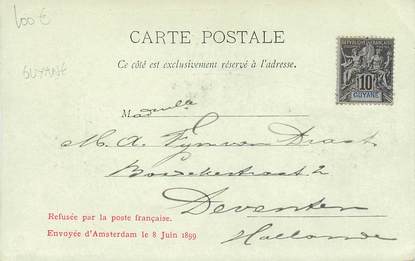 100 €
GUYANE
CARTE POSTALE
RÉPUBLIQUE FRANÇAISE
10
GUYANE
Ce côté est exclusivement réservé à l'adresse.
Mademoiselle
M. A.
2
Deventer
Hollande
Refusée par la poste française.
Envoyée d'Amsterdam le 8 Juin 1899